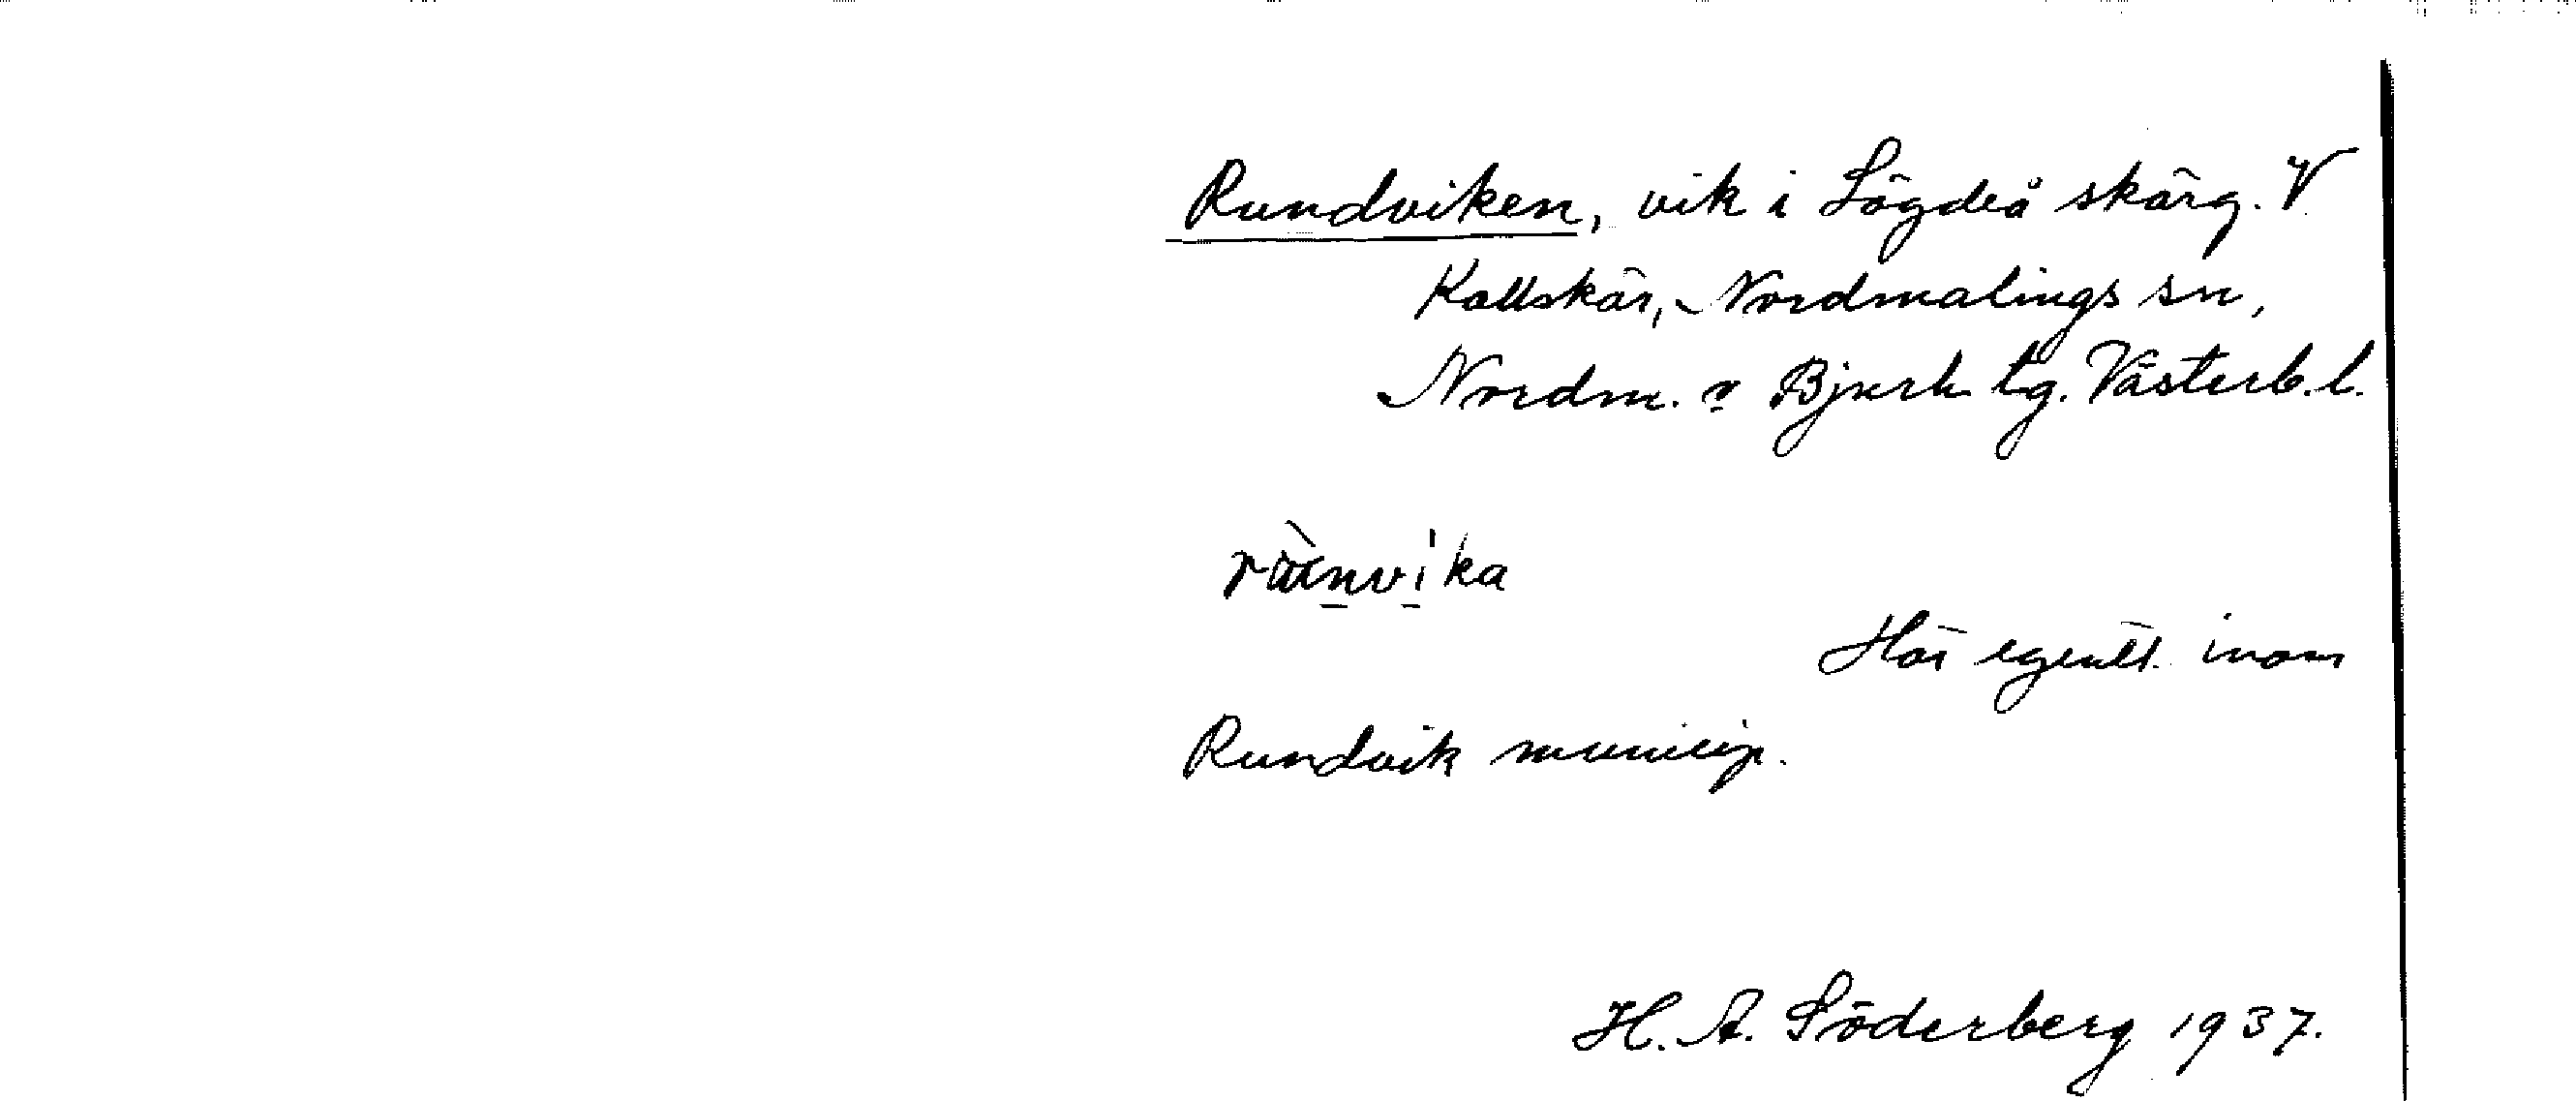 Rundviken, vik i Lögdeå skärg. V
Kallskär, Nordmalings sn,
Nordm. o Bjurh tg. Västerb. l.
Här egentl. inom
Rundvik municip.
H. A. Söderberg 1937.